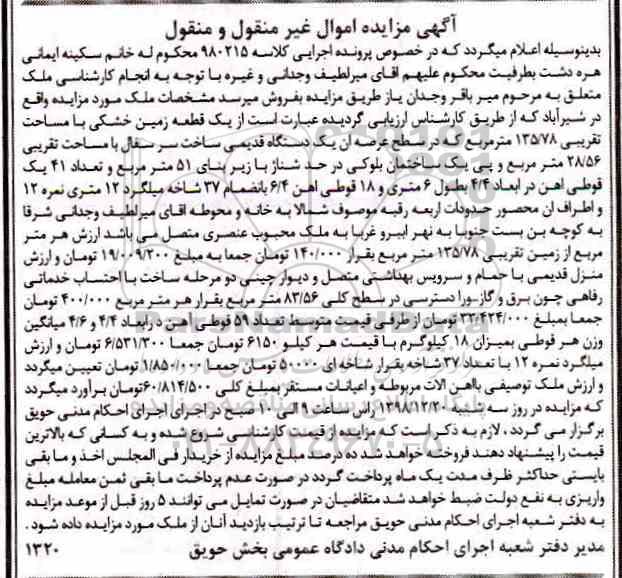 آگهی مزایده اموال غیر منقول و منقول
بدینوسیله اعلام میگردد که در خصوص پرونده اجرایی کلاسه ۹۸۰۲۱۵ محکوم له خانم سکینه ایمانی
هره دشت بطرفیت محکوم علیهم اقای میرلطیف وجدانی و غیره با توجه به انجام کارشناسی ملک
متعلق به مرحوم میر باقر وجدان یاز طریق مزایده بفروش میرسد مشخصات ملک مورد مزایده واقع
در شیرآباد که از طریق کارشناس ارزیابی گردیده عبارت است از یک قطعه زمین خشکی با مساحت
تقریبی ۱۳۵/۷۸ مترمربع که در سطح عرصه ان یک دستگاه قدیمی ساخت سر سفال با مساحت تقریبی
۲۸/۵۶ متر مربع و پی یک ساختمان بلوکی در حد شناژ با زیر بنای ۵۱ متر مربع و تعداد ۴۱ یک
قوطی اهن در ابعاد ۴/۴ بطول ۶ متری و ۱۸ قوطی اهن ۶/۴ بانضمام ۳۷ شاخه میلگرد ۱۲ متری نمره ۱۲
و اطراف ان محصور حدودات اربعه رقبه موصوف شمالا به خانه و محوطه اقای میرلطیف وجدانی شرقا
به کوچه بن بست جنوبا به نهر ابیرو غربا به ملک محبوب عنصری متصل می باشد ارزش هر متر
مربع از زمین تقریبی ۱۳۵/۷۸ متر مربع بقرار ۱۴۰/۰۰۰ تومان جمعا به مبلغ ۱۹/۰۰۹/۲۰۰ تومان و ارزش
منزل قدیمی با حمام و سرویس بهداشتی متصل و دیوار چینی دو مرحله ساخت با احتساب خدماتی
رفاهی چون برق و گازورا دسترسی در سطح کلی ۸۳/۵۶ متر مربع بقرار هر متر مربع ۴۰۰/۰۰۰ تومان
جمعا بمبلغ ۳۳/۴۲۴/۰۰۰ تومان از طرفی قیمت متوسط تعداد ۵۹ قوطی آهن د رابعاد ۴/۴ و ۴/۶ میانگین
وزن هر قوطی بمیزان ۱۸ کیلوگرم با قیمت هر کیلو ۶۱۵۰ تومان جمعا ۶/۵۳۱/۳۰۰ تومان و ارزش
میلگرد نمره ۱۲ با تعداد ۳۷ شاخه بقرار شاخه ای ۵۰۰۰۰ تومان جمعا ۱/۸۵۰/۰۰۰ تومان تعیین میگردد
و ارزش ملک توصیفی بااهن الات مربوطه و اعیانات مستقر بمبلغ کلی ۶۰/۸۱۴/۵۰۰تومان براورد میگردد
که مزایده در روز سه شنبه ۱۳۹۸/۱۲/۲۰ راس ساعت ۹ الی ۱۰ صبح در اجرای اجرای احکام مدنی حویق
برگزار می گردد . لازم به ذکر است که مزایده از قیمت کارشناسی شروع شده و به کسانی که بالاترین
قیمت را پیشنهاد دهند فروخته خواهد شد ده درصد مبلغ مزایده از خریدار فی المجلس اخذ و ما بقی
بایستی حداکثر ظرف مدت یک ماه پرداخت گردد در صورت عدم پرداخت ما بقی ثمن معامله مبلغ
واریزی به نفع دولت ضبط خواهد شد متقاضیان در صورت تمایل می توانند ۵ روز قبل از موعد مزایده
به دفتر شعبه اجرای احکام مدنی حویق مراجعه تا ترتیب بازدید آنان از ملک مورد مزایده داده شود .
مدیر دفتر شعبه اجرای احکام مدنی دادگاه عمومی بخش حویق ۱۳۲۰